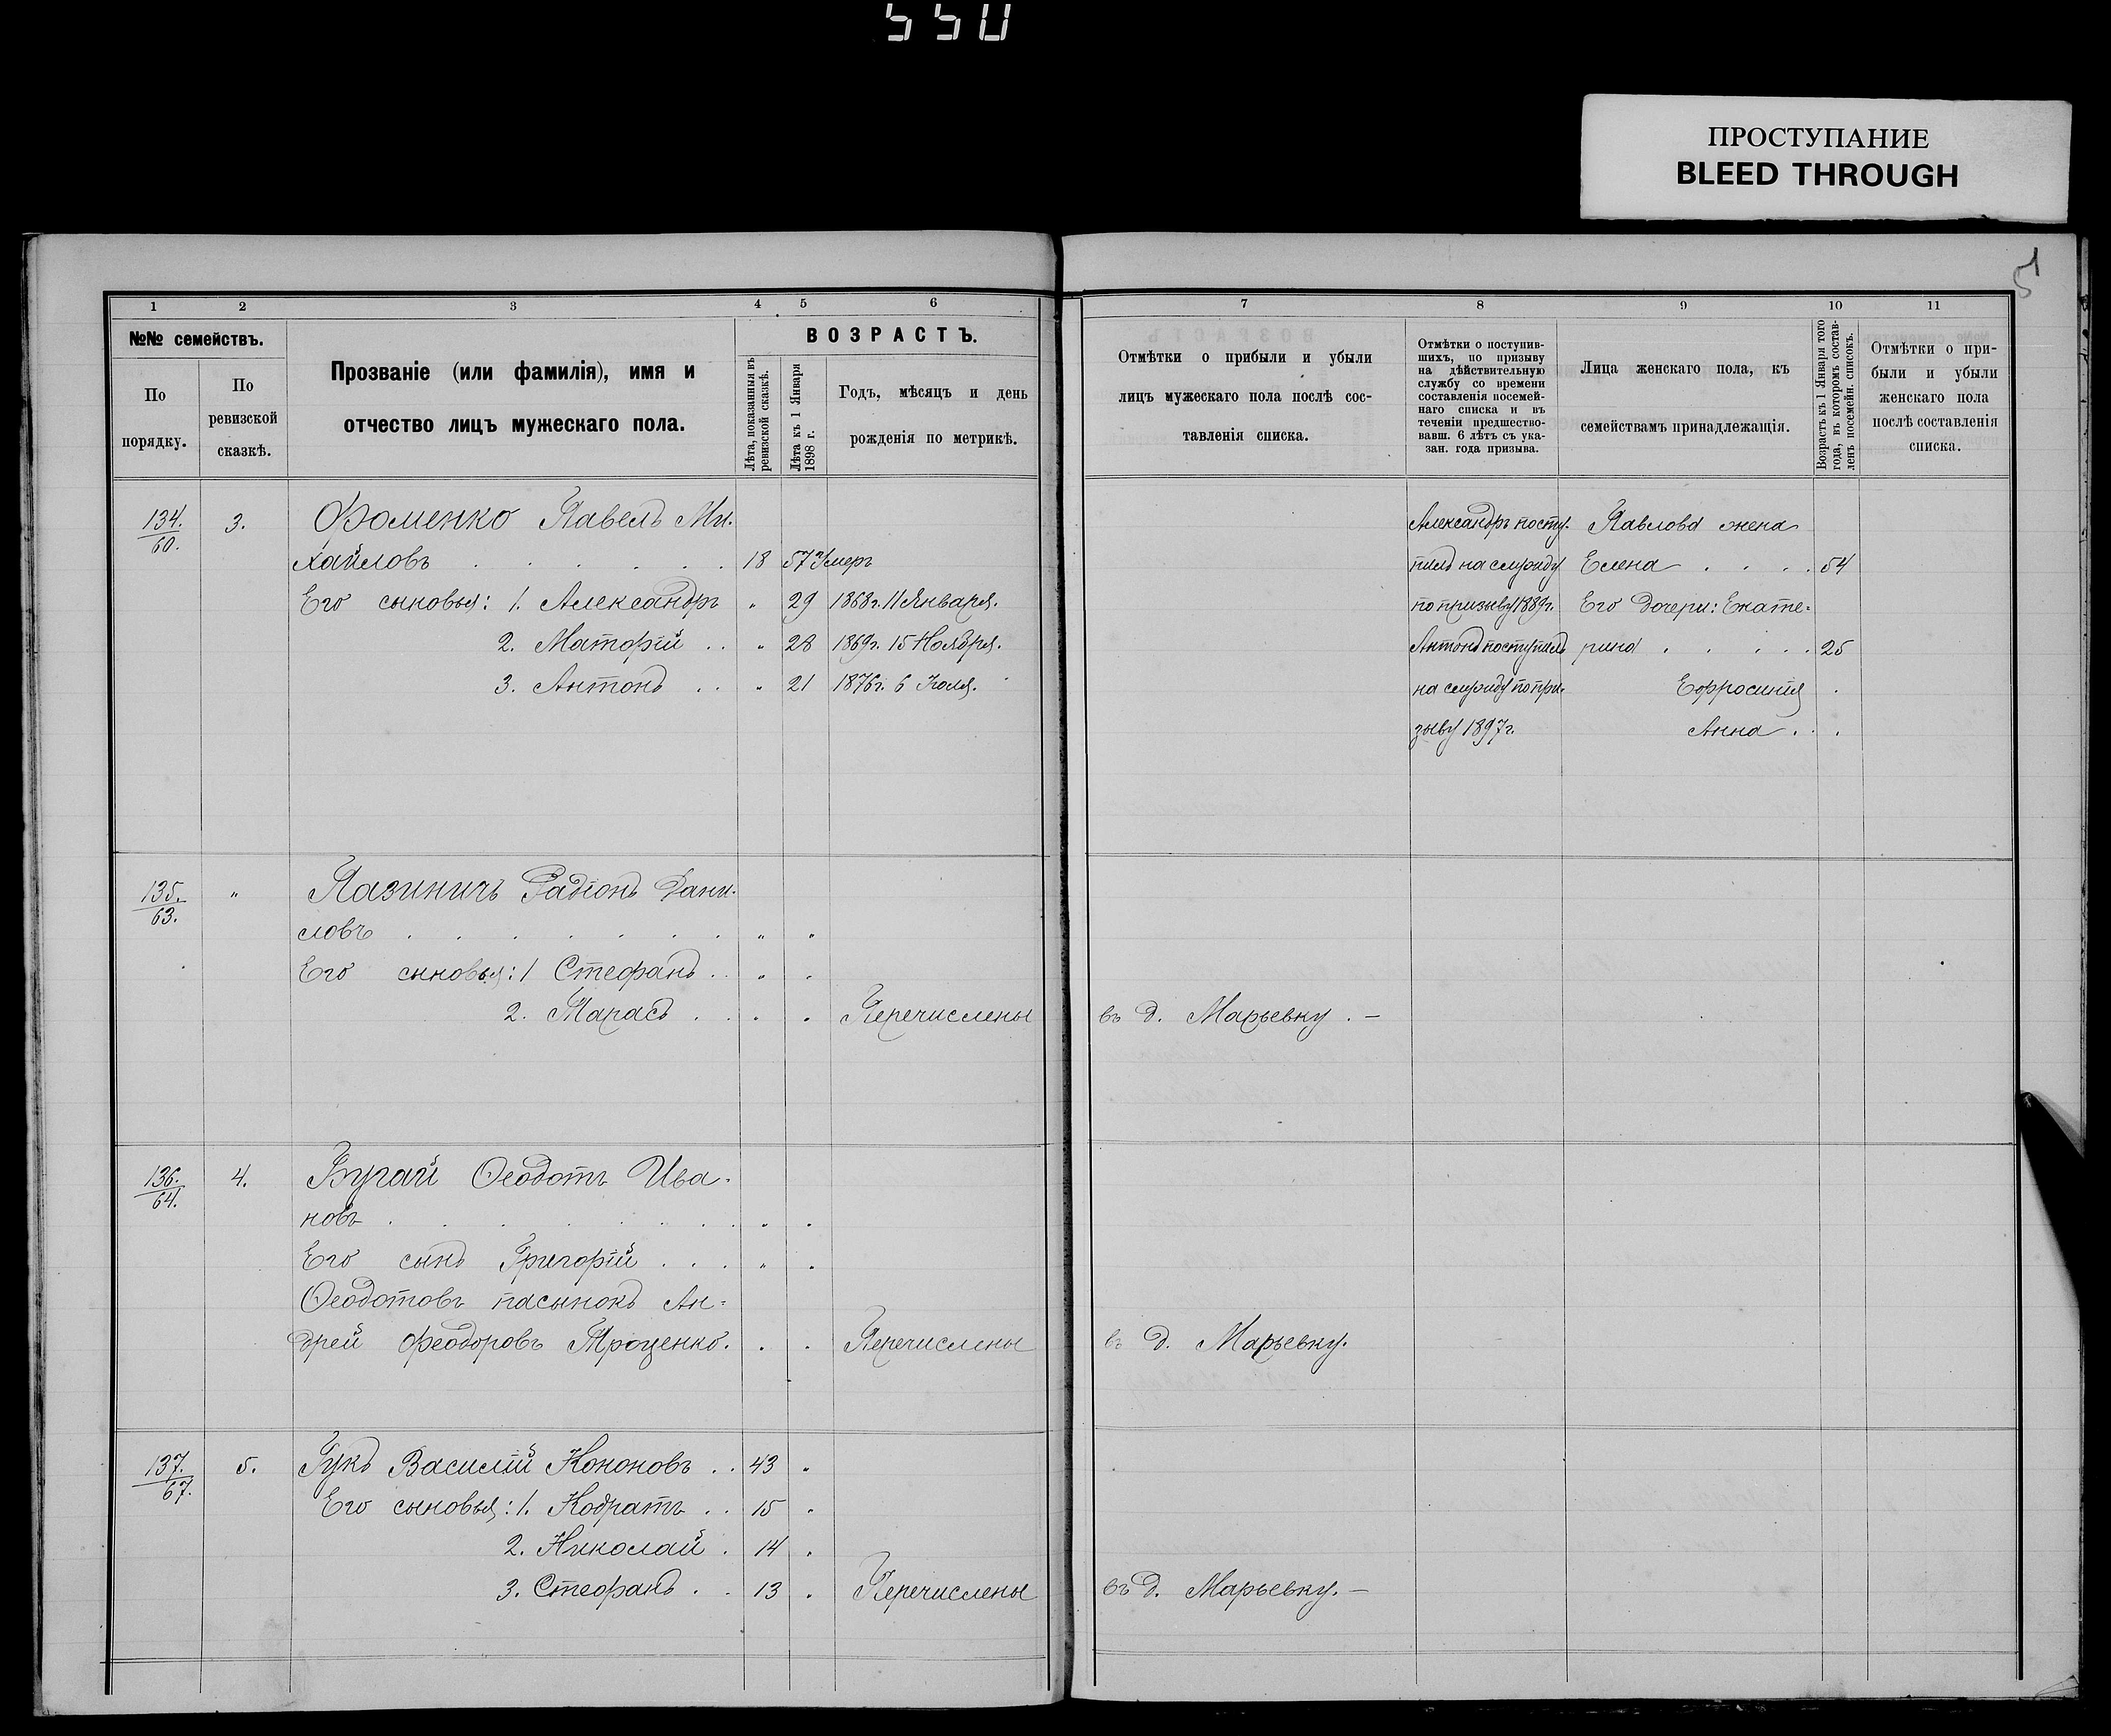 550
ПРОСТУПАНИЕ
BLEED THROUGH
51
1 2 3 4 5 6 7 8 9 10 11
№№ семействъ.
По порядку.
По ревизской сказкѣ.
Прозваніе (или фамилія), имя и
отчество лицъ мужескаго пола.
ВОЗРАСТЪ.
Лѣта, показанныя въ
ревизской сказкѣ.
Лѣта къ 1 Января
1898 г.
Годъ, мѣсяцъ и день
рожденія по метрикѣ.
Отмѣтки о прибыли и убыли
лицъ мужескаго пола послѣ сос-
тавленія списка.
Отмѣтки о поступив-
шихъ, по призыву
на дѣйствительную
службу со времени
составленія посемей-
наго списка и въ
теченіи предшество-
вавш. 6 лѣтъ съ ука-
зан. года призыва.
Лица женскаго пола, къ
семействамъ принадлежащія.
Возрастъ къ 1 Января того
года, въ которомъ состав-
ленъ посемейн. списокъ.
Отмѣтки о при-
были и убыли
женскаго пола
послѣ составленія
списка.
134. 3. Фоменко Павелъ Ми- Александръ посту- Павлова жена
60.
хайловъ . . . . . . 18 57 Умеръ пилъ на службу Елена . . . . 54
Его сыновья: 1. Александръ " 29 1868г. 11 Января. по призыву 1889г. Его дочери: Екате-
2. Маторій . . " 28 1869г. 15 Ноября. Антонъ поступилъ рина . . . . . 25
3. Антонъ . . " 21 1876г. 6 Іюля. на службу по при- Ефросинія .
зыву 1897г. Анна . . .
135. " Лазиничъ Радіонъ Дани-
63.
ловъ . . . . . . . " "
Его сыновья: 1 Стефанъ . . " "
2. Тарасъ . . " . Перечислены въ д. Марьевку. —
136. 4. Бугай Ѳеодотъ Ива-
64.
новъ . . . . . . . " "
Его сынъ Григорій . . . " "
Ѳеодотовъ пасынокъ Ан-
дрей Феодоровъ Троценко. . . Перечислены въ д. Марьевку.
137. 5. Гукъ Василій Кононовъ . . 43 "
67.
Его сыновья: 1. Кодратъ . . 15 "
2. Николай . 14 "
3. Стефанъ . . 13 " Перечислены въ д. Марьевку. —